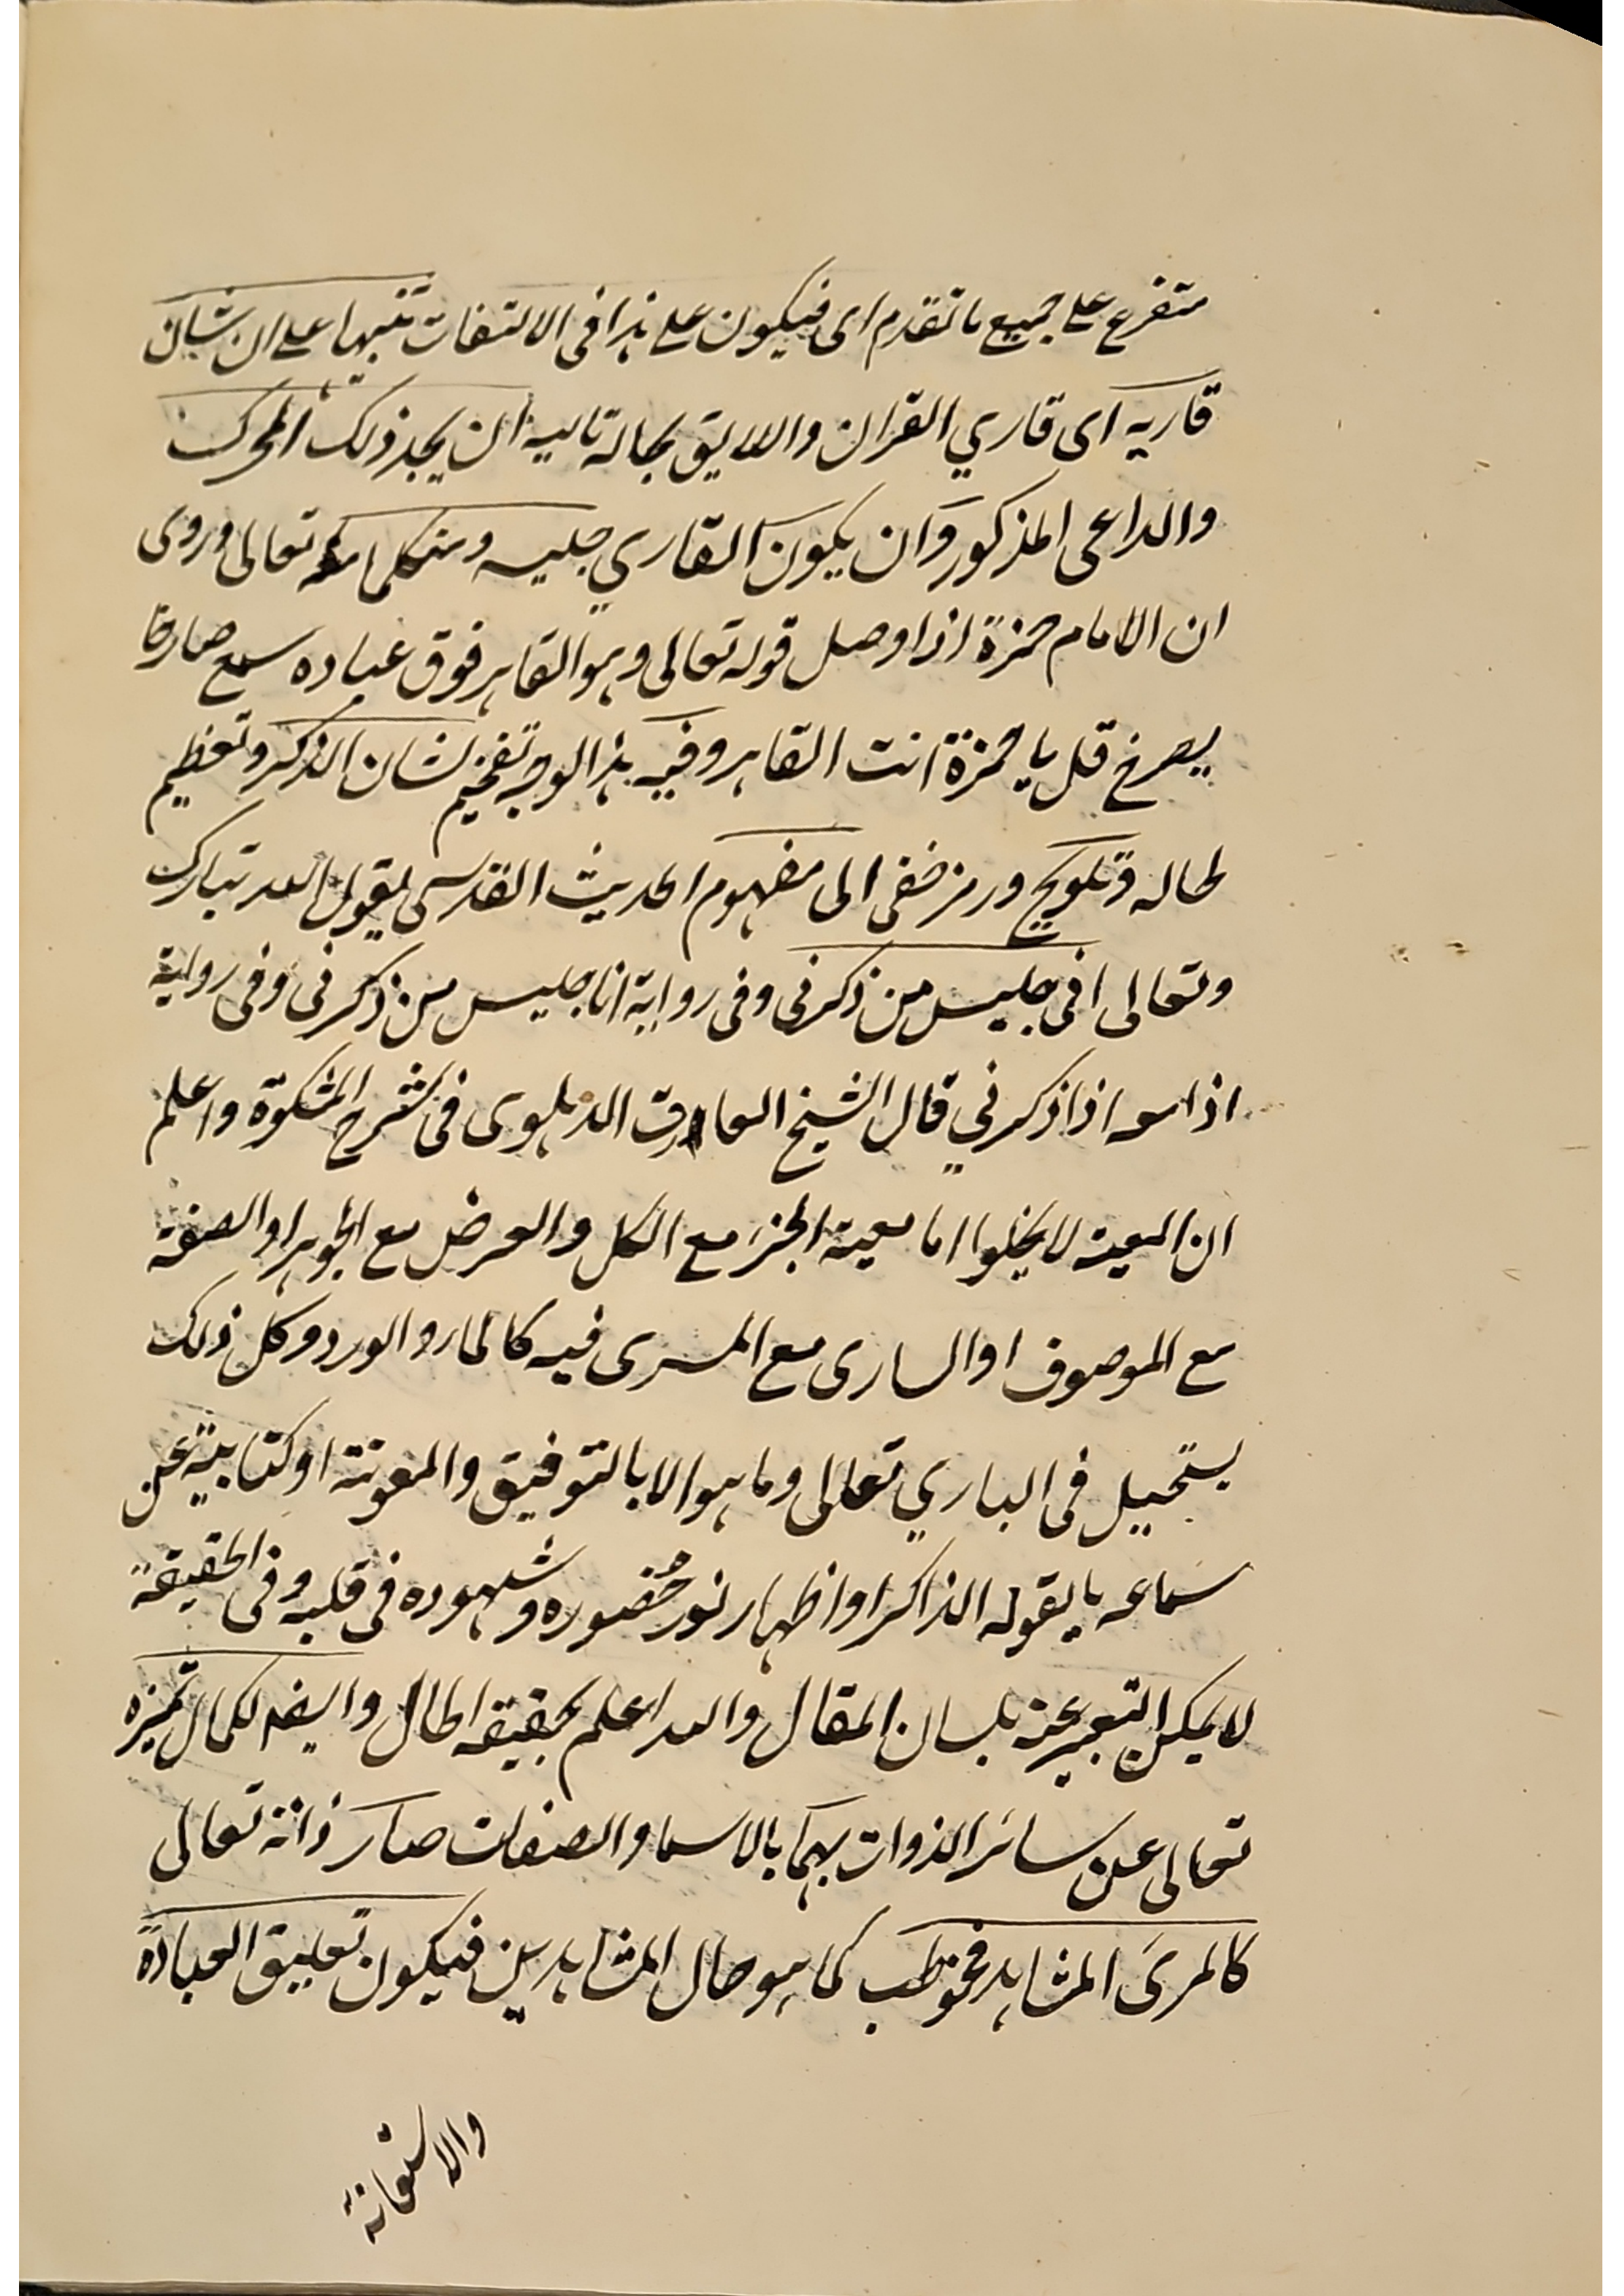 متفرع على جميع ما تقدم اى فيكون على هذا فى الالتفات تنبيها على ان شان
قاريه اى قاري القران واللايق بحالة تاليه ان يجد ذلك المحرك
والداعى المذكور وان يكون القاري جليسه ومتكلما معه تعالى وروى
ان الامام حمزة اذا وصل قوله تعالى وهو القاهر فوق عباده سمع صارخا
يصرخ قل يا حمزة انت القاهر وفيه هذا الوجه تفخيم لشان الذكر وتعظيم
لحاله وتلويح ورمز خفى الى مفهوم الحديث القدسى يقول الله تبارك
وتعالى انى جليس من ذكرنى وفى رواية انا جليس من ذكرنى وفى رواية
انا معه اذا ذكرني قال الشيخ العارف الدهلوى فى شرح المشكوة واعلم
ان المعية لا يخلوا اما معية الجزء مع الكل والعرض مع الجوهر او الصفة
مع الموصوف او السارى مع المسرى فيه كالماء والورد وكل ذلك
يستحيل فى الباري تعالى وما هو الا بالتوفيق والمعونة او كناية عن
سماعه ما يقوله الذاكر او اظهار نور حُضوره وشهوده فى قلبه وفى الحقيقة
لا يمكن التعبير عنه بلسان المقال والله اعلم بحقيقة الحال وايضا لكمال تميزه
تعالى عن سائر الذوات بهما بالاسما والصفات صار ذاته تعالى
كالمرئ المشاهد فخوطب كما هو حال المشاهدين فيكون تعليق العبادة
والاستعانة